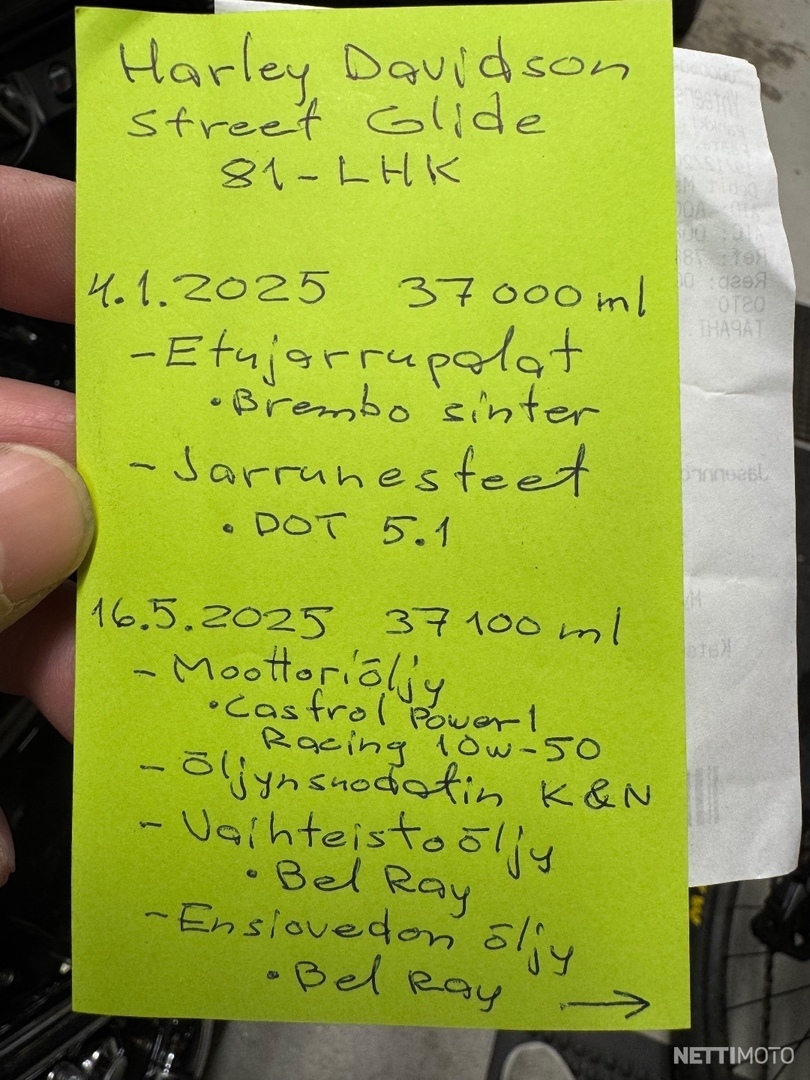 Harley Davidson
Street Glide
81-LHK
4.1.2025 37000 ml
- Etujarrupalat
• Brembo sinter
- Jarrunesteet
• DOT 5.1
16.5.2025 37100 ml
- Moottoriöljy
• Castrol Power1
Racing 10w-50
- Öljynsuodatin K&N
- Vaihteistoöljy
• Bel Ray
- Ensiovedon öljy
• Bel Ray
→
NETTIMOTO